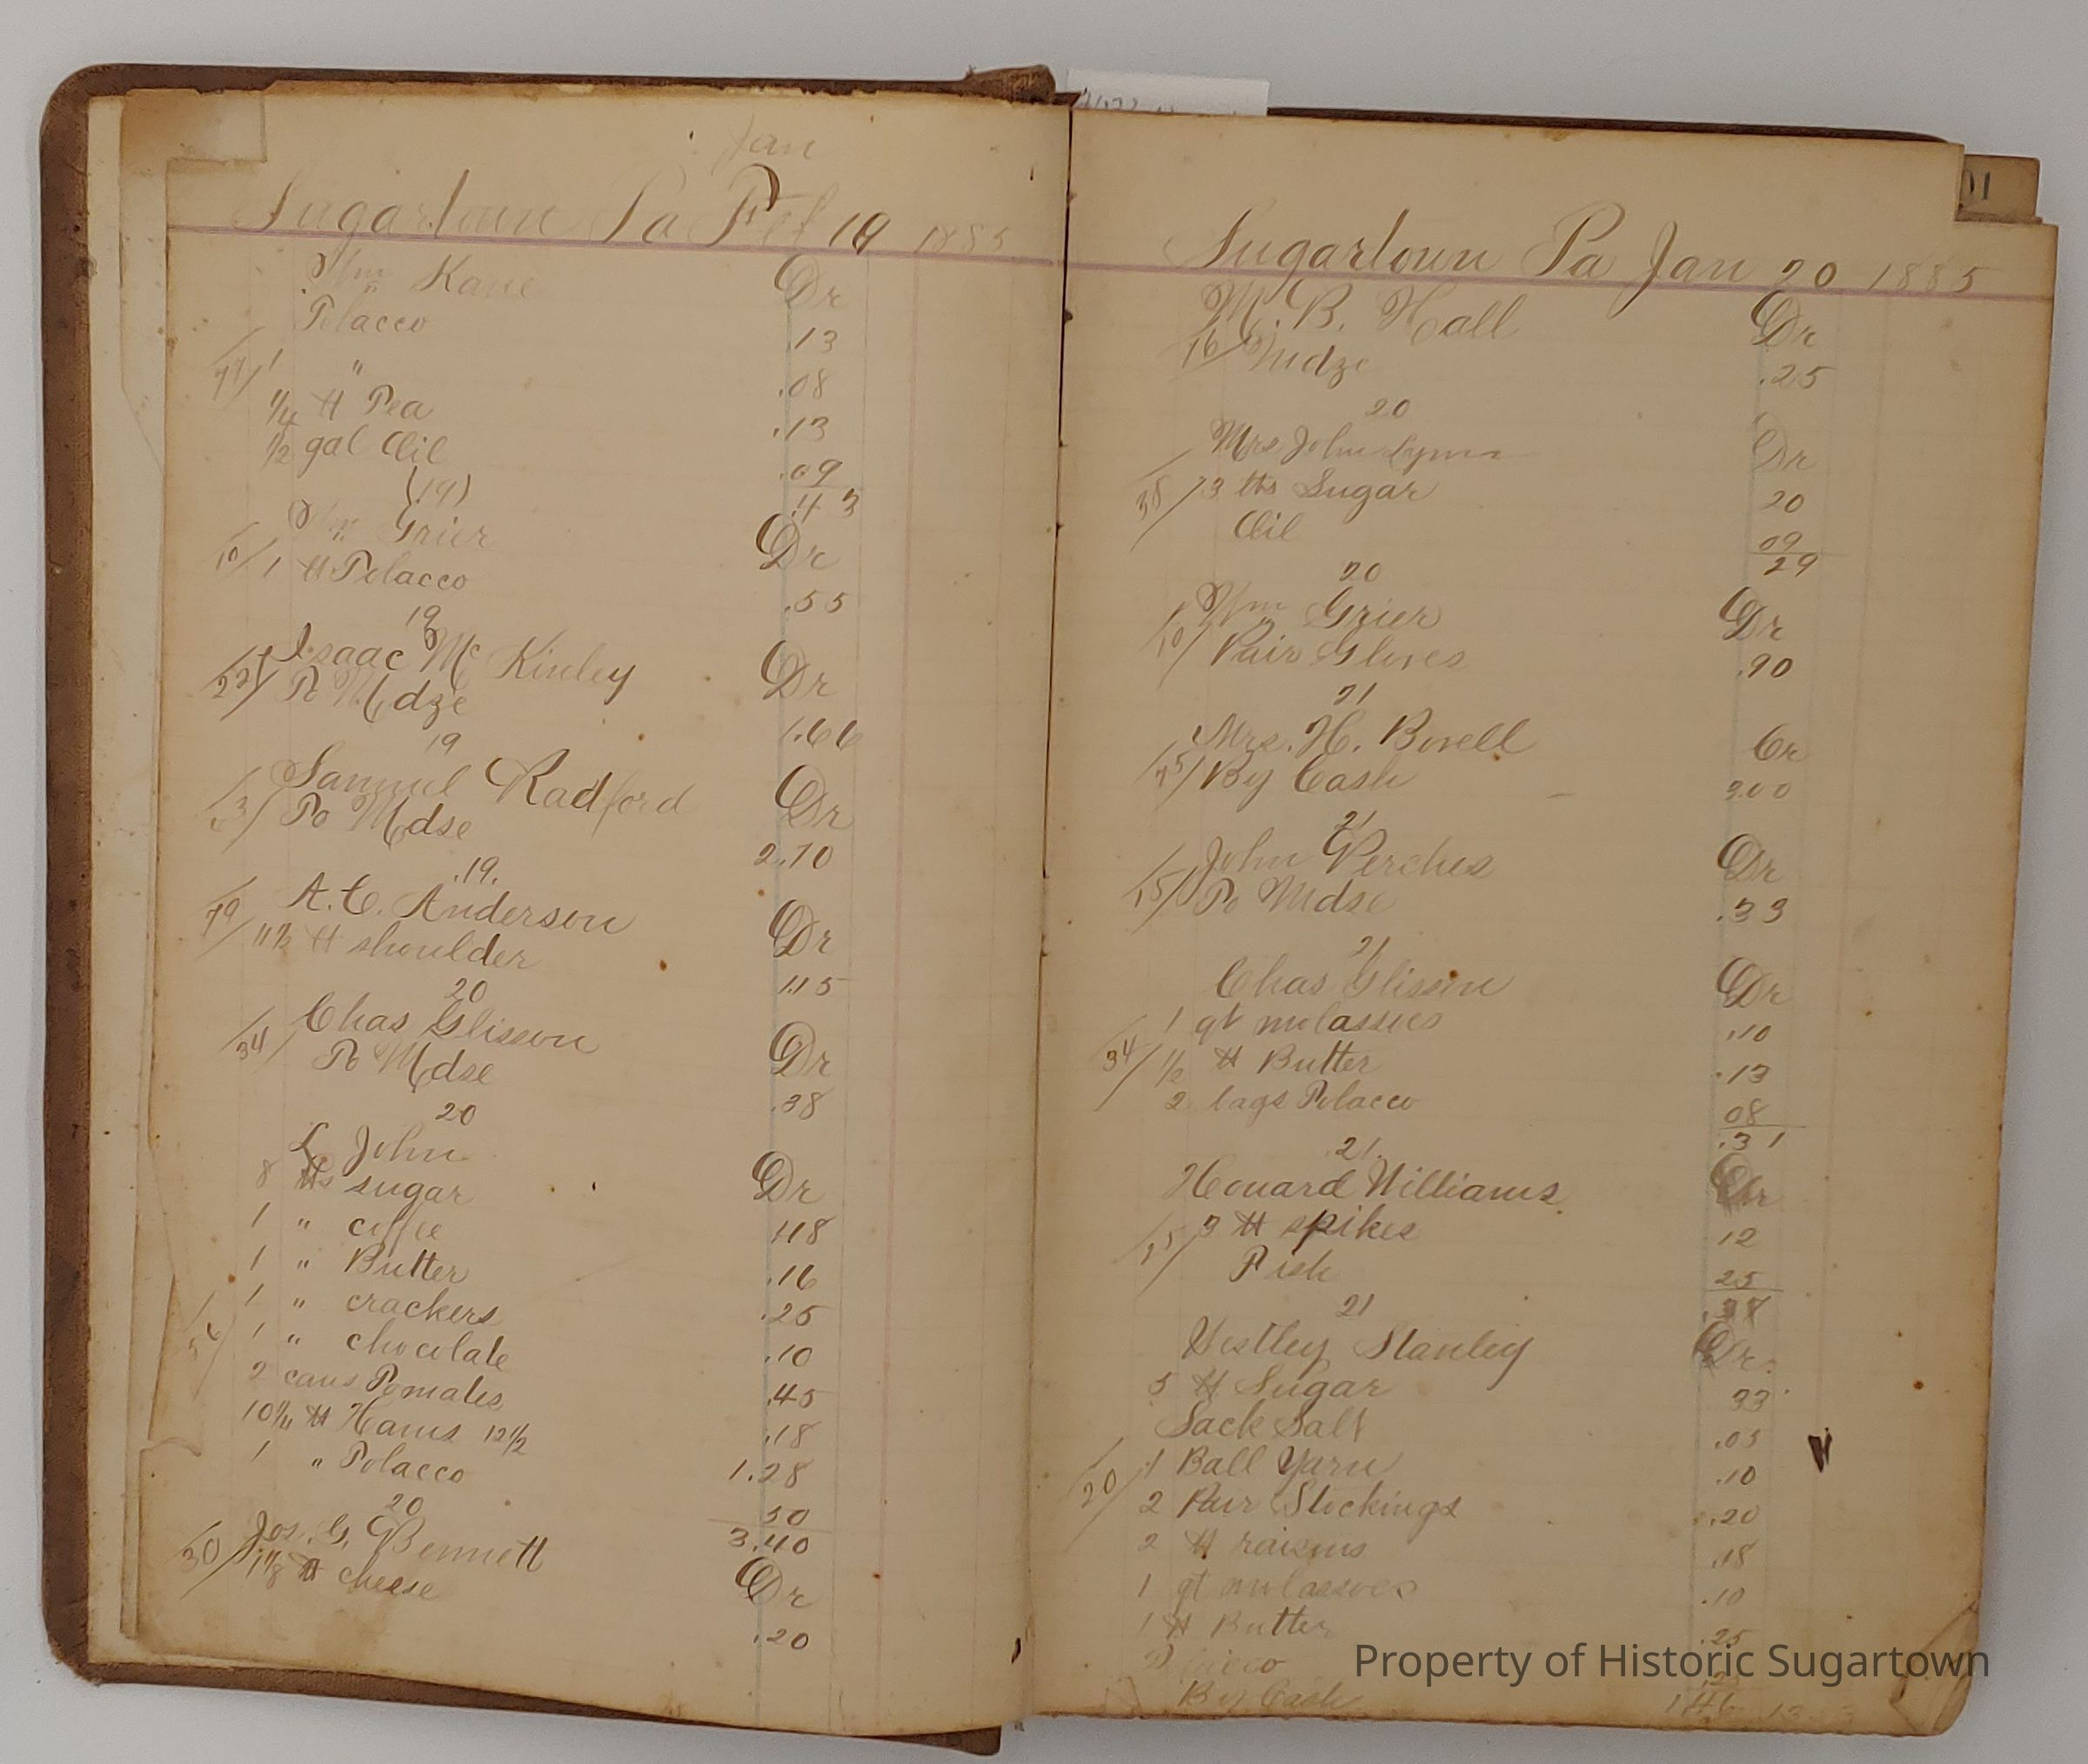 Jan
Sugartown Pa Feb 19 1885
Wm Kane Dr
Tobacco .13
77/ 1 " .08
1/4 ℔ Tea .13
1/2 gal Oil .09
(19) .43
Wm Grier Dr
10/ 1 ℔ Tobacco .55
19
Isaac Mc Kinley Dr
22/ To Mdze 1.66
19
Samuel Radford Dr
3/ To Mdse 2.70
.19.
A. C. Anderson Dr
79/ 11 1/2 ℔ shoulder 1.15
20
Chas Glisson Dr
34/ To Mdse .38
20
L John Dr
8 ℔s sugar .48
1 " coffee .16
1 " Butter .25
1 " crackers .10
1 " chocolate .45
2 cans Tomatoes .18
10 1/4 ℔ Hams 12 1/2 1.28
1 " Tobacco 50
20 3.40
Jos. G. Bennett Dr
30/ 1 1/8 ℔ cheese .20
01
Sugartown Pa Jan 20 1885
M. B. Hall Dr
16/ Mdze .25
20
Mrs John Lynn Dr
38/ 3 ℔s Sugar 20
Oil 09
29
20
Wm Grier Dr
10/ Pair Gloves .90
21
Mrs. H. Bovell Cr
75/ By Cash 3.00
21
John Perches Dr
15/ To Mdse .33
21
Chas Glisson Dr
1 qt molasses .10
34/ 1/2 ℔ Butter .13
2 bags Tobacco 08
.31
21.
Howard Williams Dr
3 ℔ spikes 12
Fish 25
.37
21
Westley Stanley Dr.
5 ℔ Sugar 33
Sack Salt .05
20/ 1 Ball Yarn .10
2 Pair Stockings .20
2 ℔ raisins .18
1 qt molasses .10
1 ℔ Butter .25
By Cash
Property of Historic Sugartown